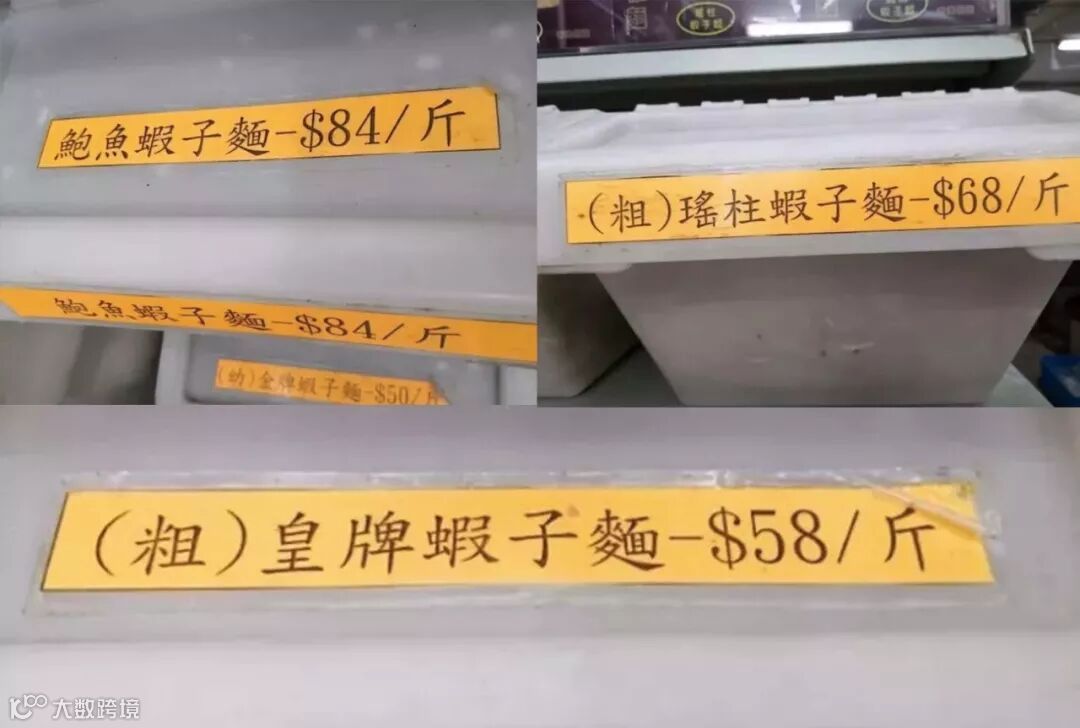 鮑魚蝦子麵-$84/斤
鮑魚蝦子麵-$84/斤
(幼)金牌蝦子麵-$50/斤
(粗)瑤柱蝦子麵-$68/斤
(粗)皇牌蝦子麵-$58/斤
大数跨境